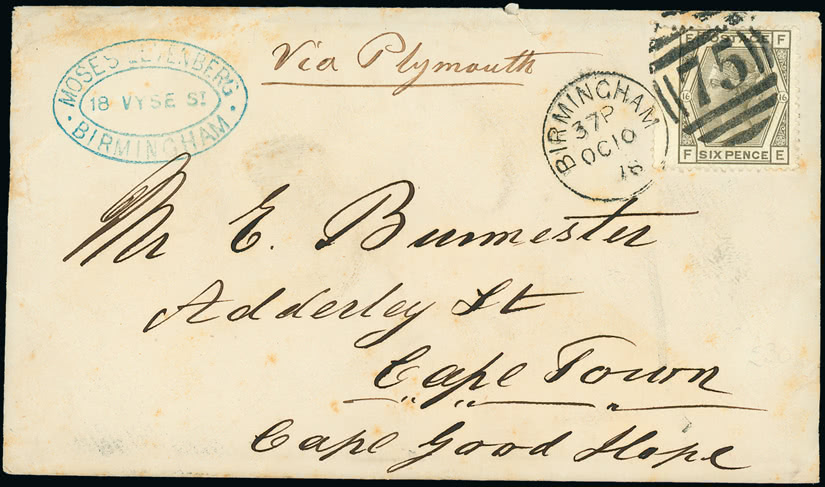 MOSES LEVENBERG
18 VYSE ST
BIRMINGHAM
Via Plymouth
BIRMINGHAM
37P
OC10
78
75
E POSTAGE F
16 16
F SIX PENCE E
Mr E. Burmester
Adderley St
Cape Town
Cape Good Hope